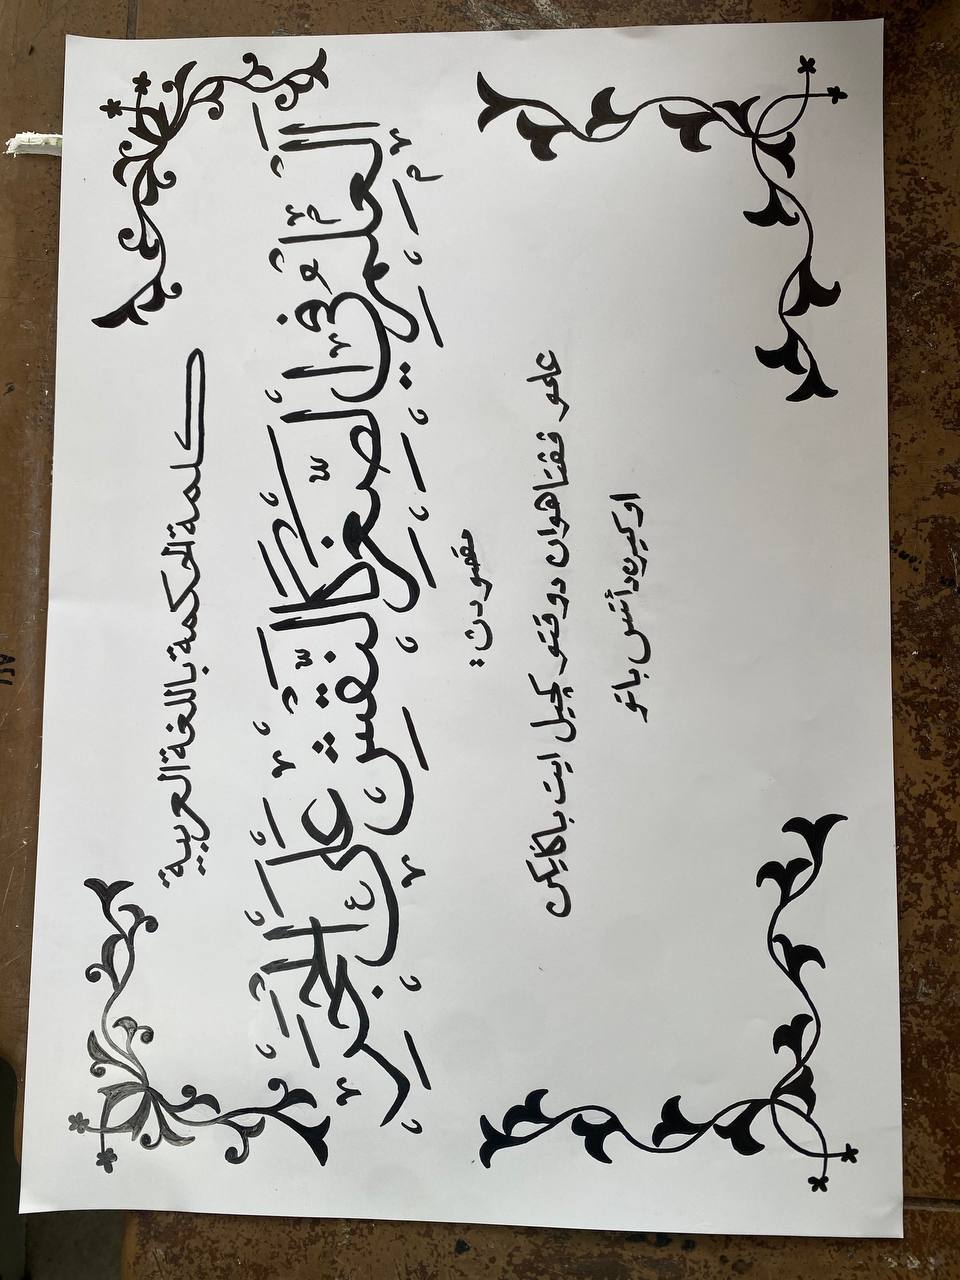 كلمة الحكمة باللغة العربية
اَلْعِلْمُ فِي الصِّغَرِ كَالنَّقْشِ عَلَى الْحَجَرِ
مقصودث:
علمو فڠتاهوان دوقتو کچيل ايت باڬايكن
اوکيرن دأتس باتو